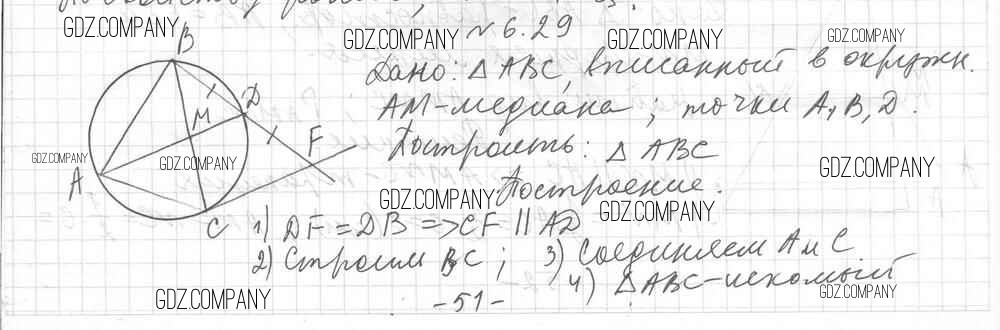 GDZ.COMPANY
№ 6.29
GDZ.COMPANY
GDZ.COMPANY
GDZ.COMPANY
B
Дано: △ABC, вписанный в окружн.
AM-медиана; точки A, B, D.
D
M
F
GDZ.COMPANY
GDZ.COMPANY
Построить: △ABC
GDZ.COMPANY
A
GDZ.COMPANY
Построение.
GDZ.COMPANY
C
1) DF = DB => CF || AD
2) Строим BC; 3) Соединяем A и C
4) △ABC-искомый
GDZ.COMPANY
GDZ.COMPANY
-51-